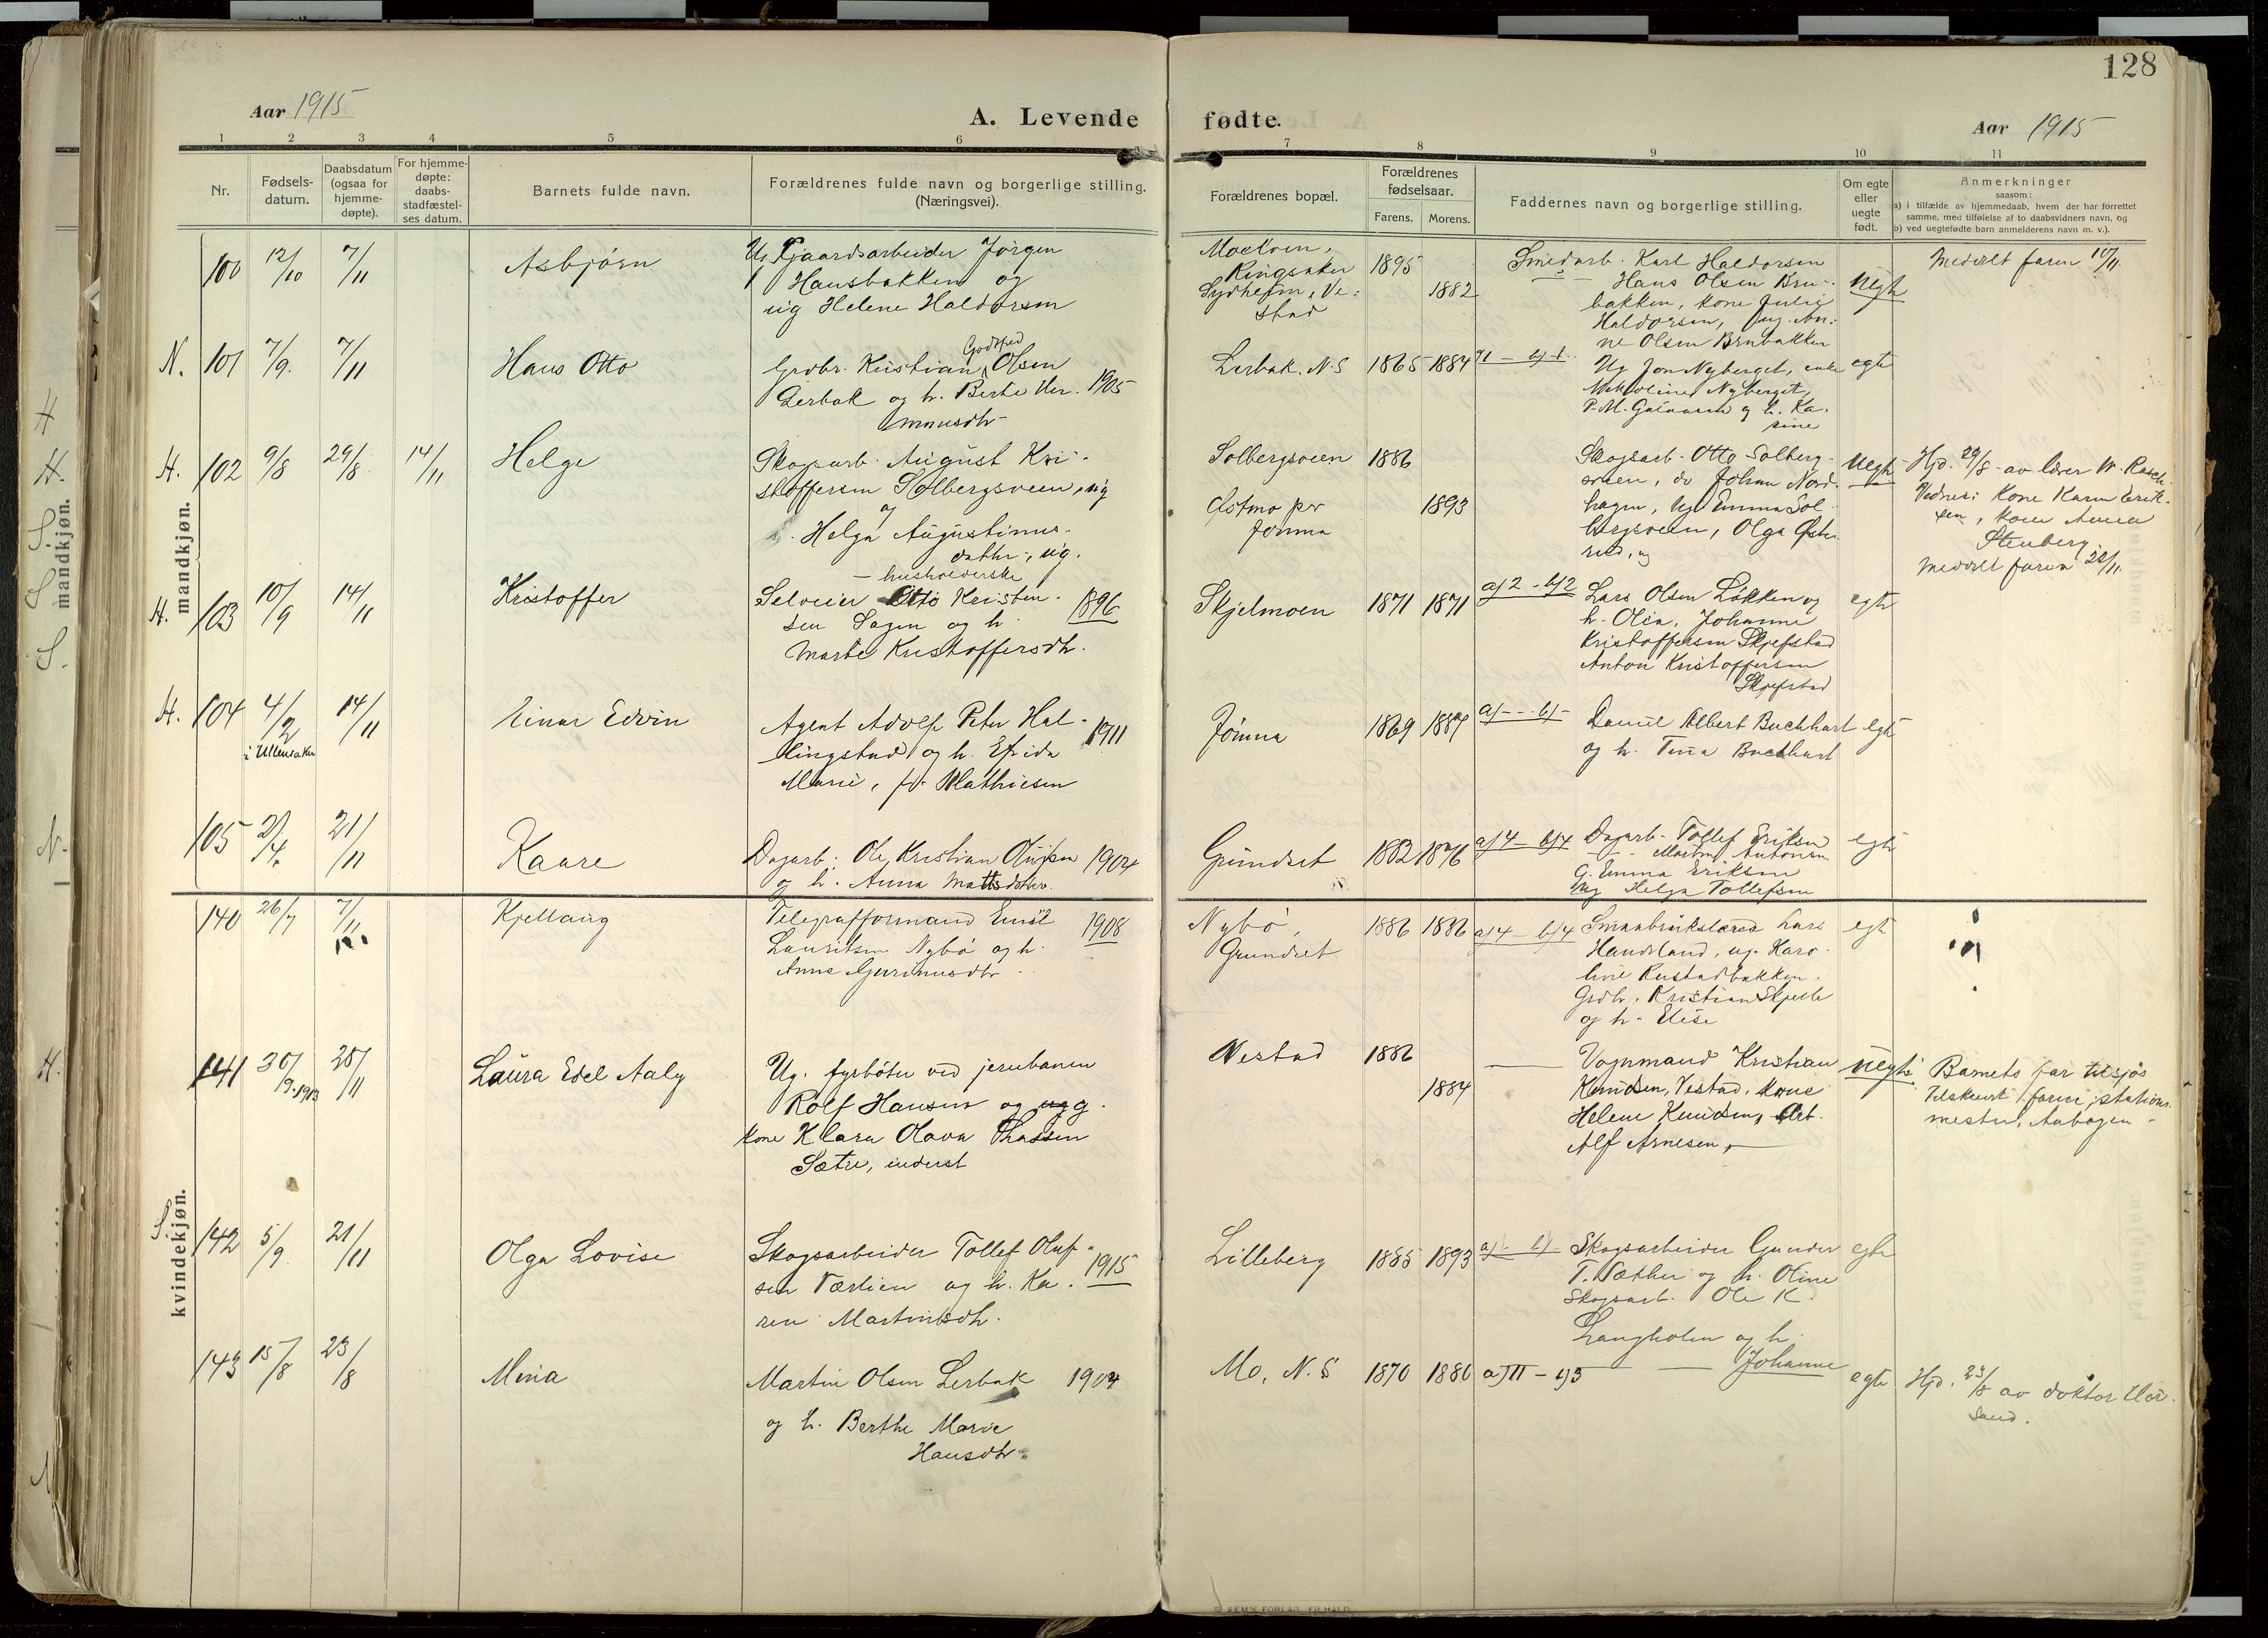 128
Aar 1915
A. Levende fødte.
Aar 1915
1 2 3 4 5 6 7 8 9 10 11
Nr.
Fødsels-
datum.
Daabsdatum
(ogsaa for
hjemme-
døpte).
For hjemme-
døpte:
daabs-
stadfæstel-
ses datum.
Barnets fulde navn.
Forældrenes fulde navn og borgerlige stilling.
(Næringsvei).
Forældrenes bopæl.
Forældrenes
fødselsaar.
Farens. Morens.
Faddernes navn og borgerlige stilling.
Om egte
eller
uegte
født.
Anmerkninger
saasom:
a) i tilfælde av hjemmedaab, hvem der har forrettet
samme, med tilføielse af to daabsvidners navn, og
b) ved uegtefødte barn anmelderens navn m. v.).
mandkjøn.
100 12/10 7/11
Asbjørn
Ug. Gjaardsarbeider Jørgen
Hansbakken og
ug Helene Haldorsen
Moelven,
Ringsaker 1895
Sydheim, Ve-
stad
1882
Smedarb. Karl Haldorsen
Hans Olsen Bru-
bakken, kone Julie
Haldorsen, pig. An-
ne Olsen Brubakken
Uegte
Meddelt faren 10/11.
N. 101 7/9. 7/11
Hans Otto
Godtfred
Grdbr. Kristian Olsen
Lerbak og h. Berte Her- 1905
mansdtr
Lerbak. N.S 1865 1884
Ug Jon Nyberget, enke
Nyberget,
P.M. Gunnarsen og h. Ka-
sine
egte
H. 102 9/8 29/8 14/11
Helge
Skogsarb. August Kri-
stoffersen Solbergsveen, ug
og
Helga Augustinus-
datter, ug.
- husholderske
Solbergsveen 1886
Østmo pr
Jømna
1893
Skogsarb. Otto Solberg-
sveen, do Johan Nord-
hagen, ug. Emma Sol-
bergsveen, Olga Øster-
rud, ug
Uegte
Hjd. 29/8 av lærer W. Rasch.
Vidner: Kone Karen Erik-
sen, kone Anna
Stenberg.
Meddelt faren 22/11.
H. 103 10/9 14/11
Kristoffer
Selveier Otto Kristen- 1896
sen Sagen og h.
Marte Kristoffersdtr.
Skjelmoen 1871 1871 a) 2 - b) 2
Lars Olsen Løkken og
h. Olea, Johanne
Kristoffersen Skjefstad
Anton Kristoffersen
Skjefstad
egte
H. 104 4/2 14/11
i Ullensaker
Einar Edvin
Agent Adolf Peter Hal- 1911
lingstad og h. Efrida
Marie, f. Mathiesen
Jømna 1869 1887 a) - - b) -
Daniel Albert Buchhart
og h. Tina Buchhart
egte
105 2/4. 21/11
Kaare
Dagarb. Ole Kristian Olufsen 1904
og h. Anna Mattsdotter.
Grundset 1882 1876 a) 4 - b) 4
Dagarb. Tollef Eriksen
- - Martin Antonsen
G. Emma Eriksen
Ung Helga Tollefsen
egte
kvindekjøn.
140 26/7 7/11
Kjellaug
Telegrafformand Emil 1908
Lauritsen Nybø og h.
Anne Gjermundsdtr
Nybø,
Grundset
1886 1886 a) 4 - b) 4
Smaabrukslærer Lars
Haudland, ug. Karo-
line Rustadbakken.
Grdbr. Kristian Skjelle
og h. Elise
egte
141 30/9.1913 28/11
Laura Edel Aaly
Ug. fyrbøter ved jernbanen
Rolf Hansen og ug g.
kone Klara Olava Thassen
Sætre, inderst
Vestad 1886
1884
Vognmand Kristian
Knudsen, Vestad, kone
Helene Knudsen, Arb.
Alf Arnesen,
Uegte
Barnets far tilsjøs
Tilskrevet faren, stations-
mester, Aabogen
S. 142 5/9. 21/11
Olga Lovise
Skogsarbeider Tollef Oluf- 1915
sen Værlien og h. Ka-
ren Martinsdtr.
Lilleberg 1885 1893 a) - b) -
Skogsarbeider Gunder
T. Næther og h. Oline
Skogsarb. Ole K.
Langholen og h.
Johanne
egte
143 15/8 23/8
Mina
Martin Olsen Lerbak 1904
og h. Berthe Marie
Hansdtr.
Mo, N. S 1870 1880 a) 11 - b) 3
egte
Hjd. 23/8 av doktor Har-
sand.